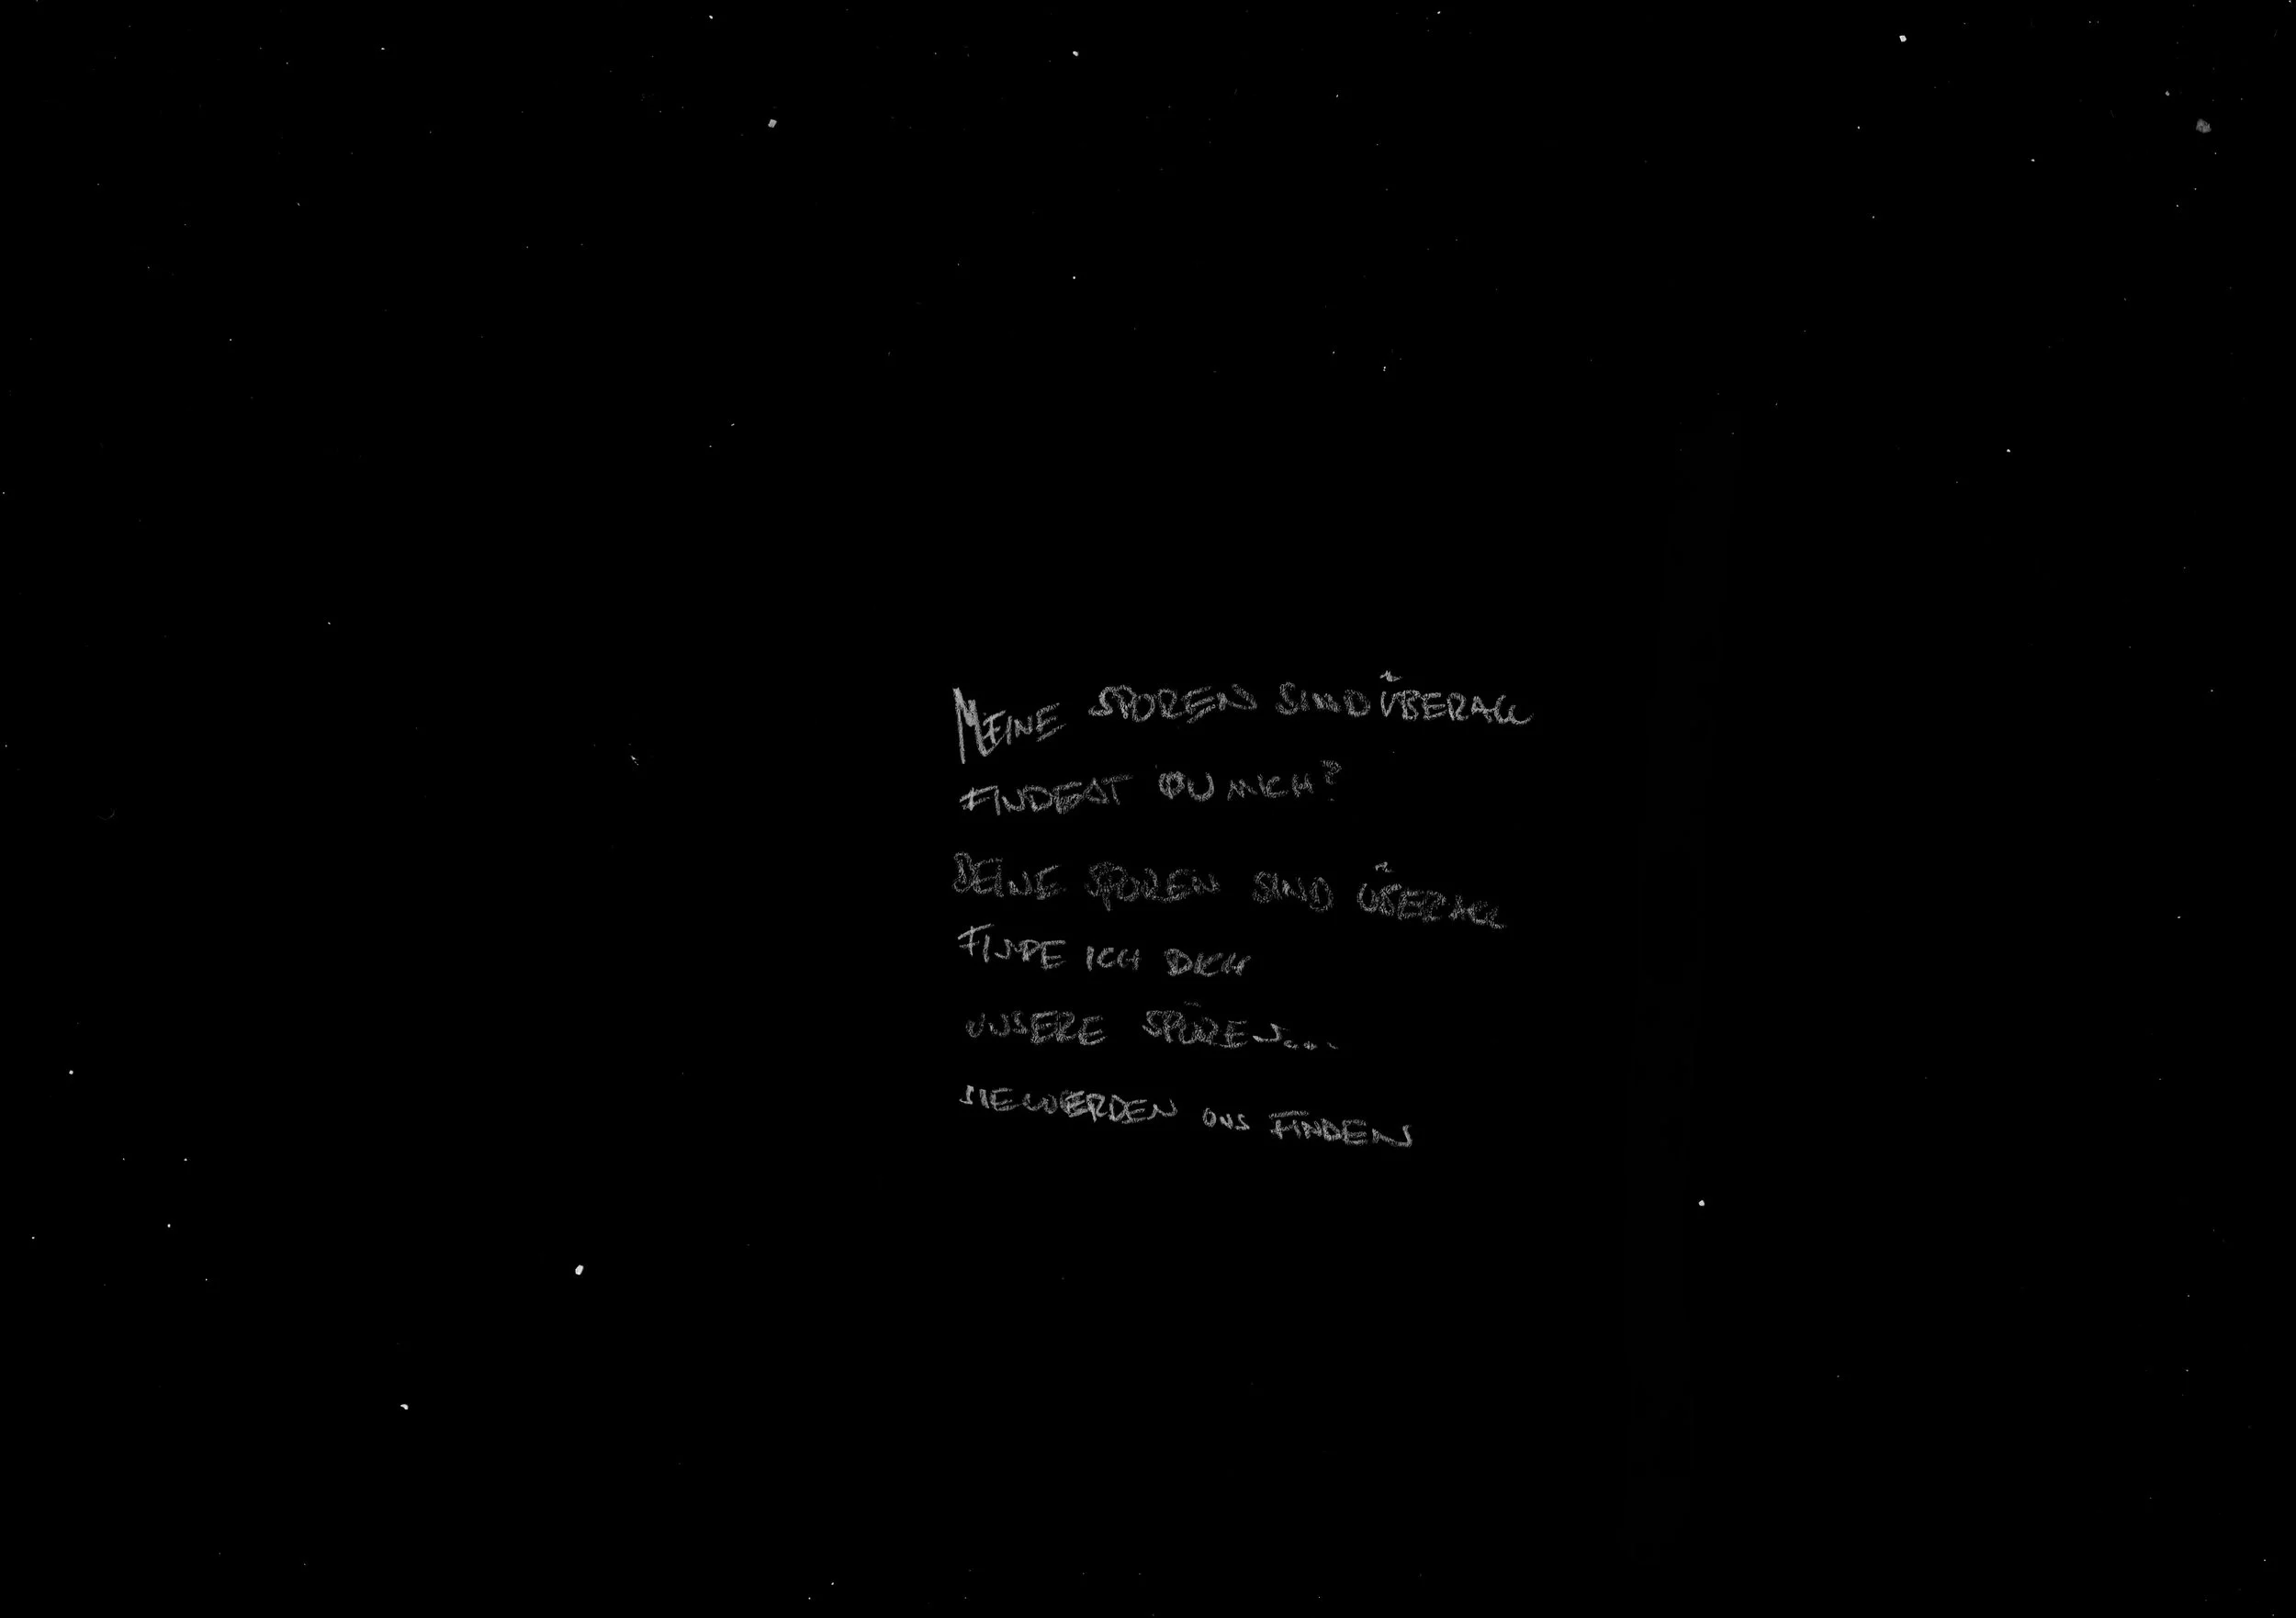 MEINE SPOREN SIND ÜBERALL
FINDEST DU MICH?
DEINE SPOREN SIND ÜBERALL
FINDE ICH DICH
UNSERE SPOREN...
SIE WERDEN UNS FINDEN